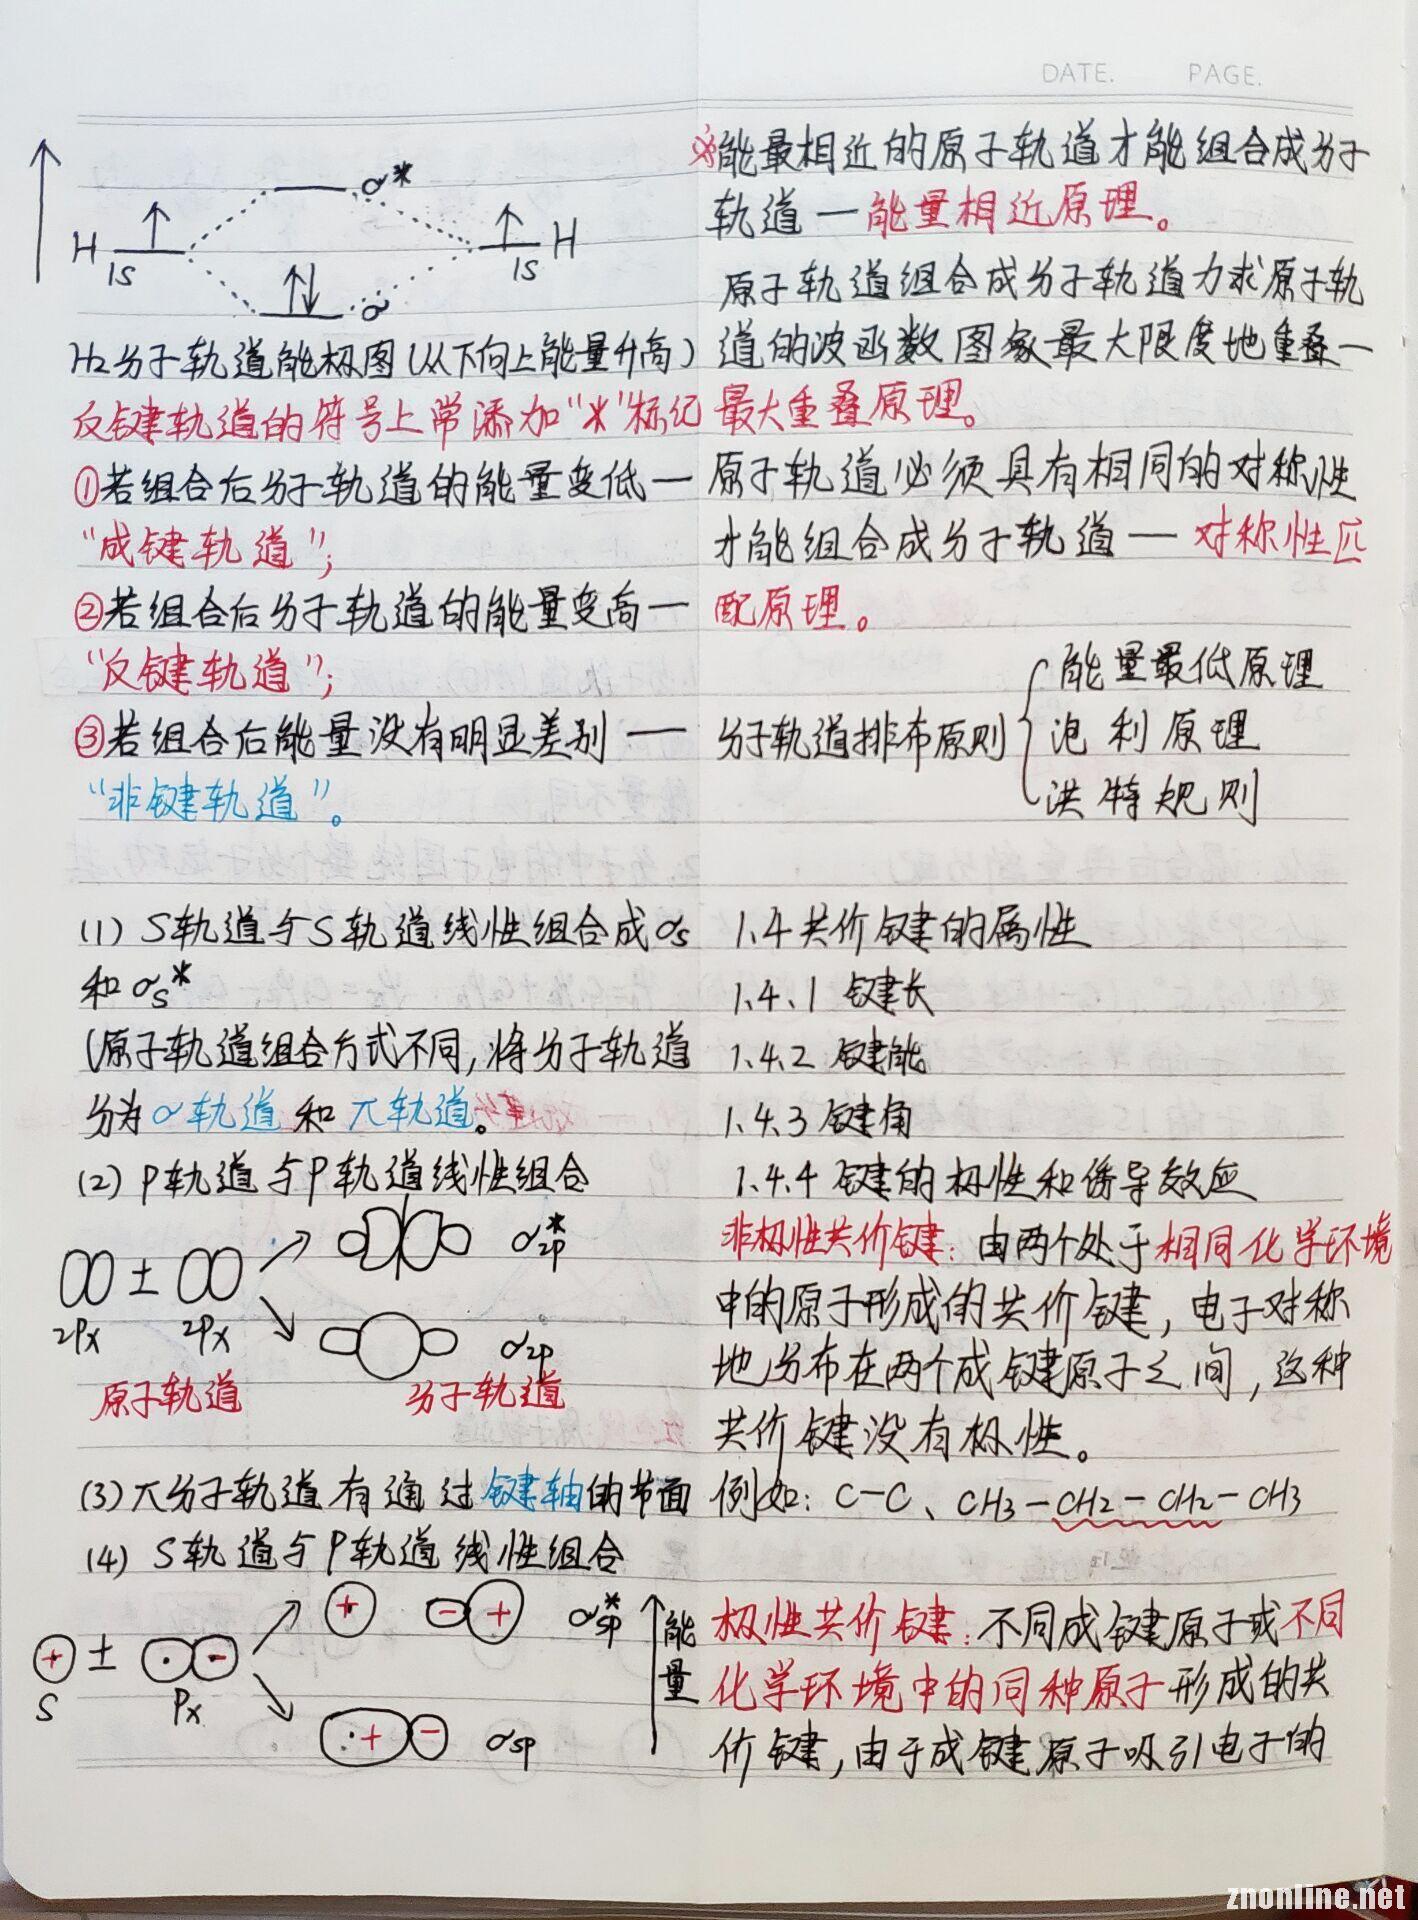 DATE. PAGE.
σ*
H 1S
1S H
σ
H₂分子轨道能极图(从下向上能量升高)
反键轨道的符号上常添加“*”标记
①若组合后分子轨道的能量变低—
“成键轨道”;
②若组合后分子轨道的能量变高—
“反键轨道”;
③若组合后能量没有明显差别——
“非键轨道”。
(1) S轨道与S轨道线性组合成σs
和σs*
(原子轨道组合方式不同,将分子轨道
分为σ轨道和π轨道。
(2) P轨道与P轨道线性组合
σ2p*
±
2Px 2Px
σ2p
原子轨道 分子轨道
(3) π分子轨道有通过键轴的节面
(4) S轨道与P轨道线性组合
+ - + σsp*
+ ± · -
S Px
+ - σsp
能量
※能量相近的原子轨道才能组合成分子
轨道—能量相近原理。
原子轨道组合成分子轨道力求原子轨
道的波函数图象最大限度地重叠—
最大重叠原理。
原子轨道必须具有相同的对称性
才能组合成分子轨道——对称性匹
配原理。
能量最低原理
分子轨道排布原则 泡利原理
洪特规则
1.4 共价键的属性
1.4.1 键长
1.4.2 键能
1.4.3 键角
1.4.4 键的极性和诱导效应
非极性共价键:由两个处于相同化学环境
中的原子形成的共价键,电子对称
地分布在两个成键原子之间,这种
共价键没有极性。
例如:C-C、CH3-CH2-CH2-CH3
极性共价键:不同成键原子或不同
化学环境中的同种原子形成的共
价键,由于成键原子吸引电子的
znonline.net